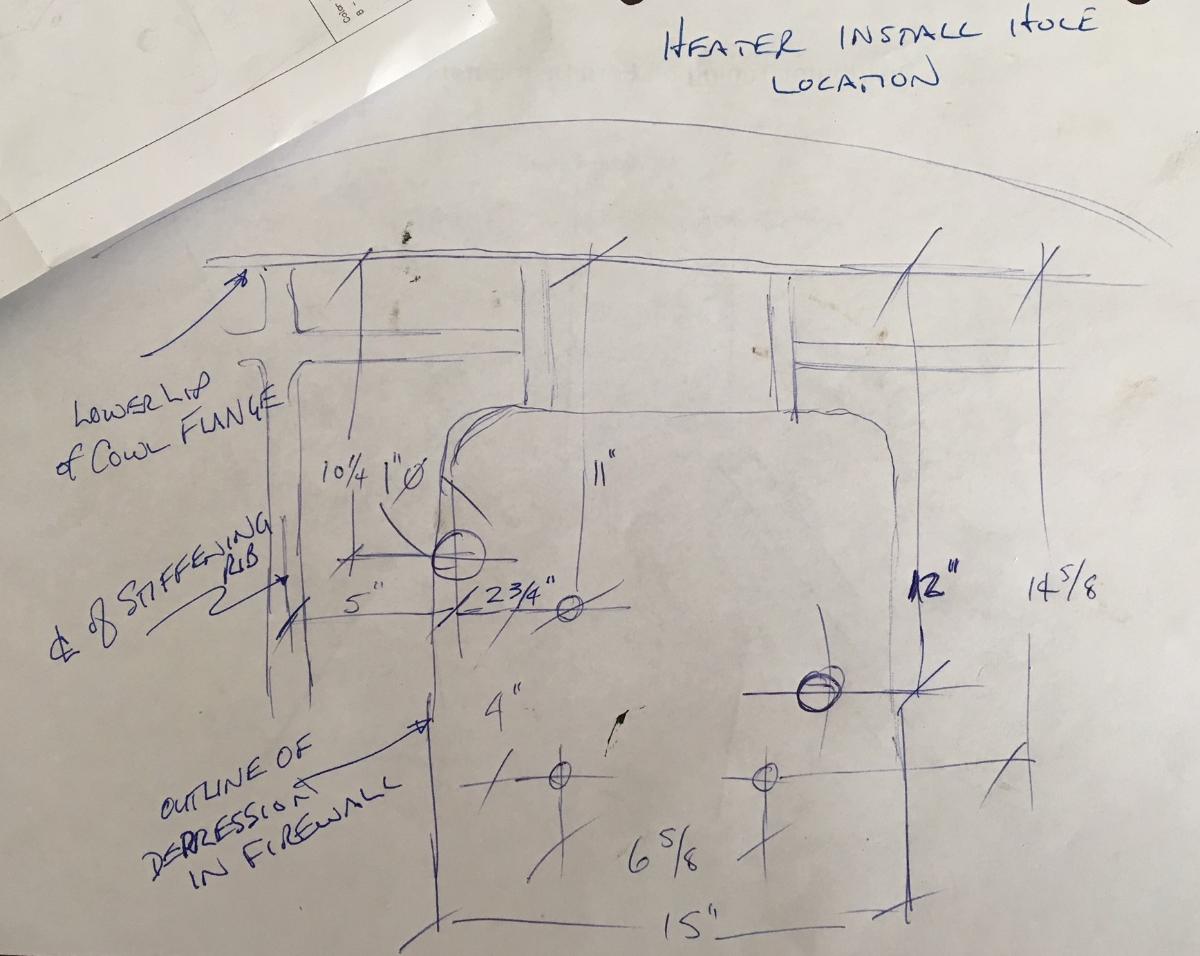 B -
Color
HEATER INSTALL HOLE
LOCATION
LOWER LIP
of COWL FLANGE
10 1/4
1"Ø
11"
℄ of STIFFENING
RIB
5"
2 3/4"
12"
14 5/8
4"
OUTLINE OF
DEPRESSION
IN FIREWALL
6 5/8
15"